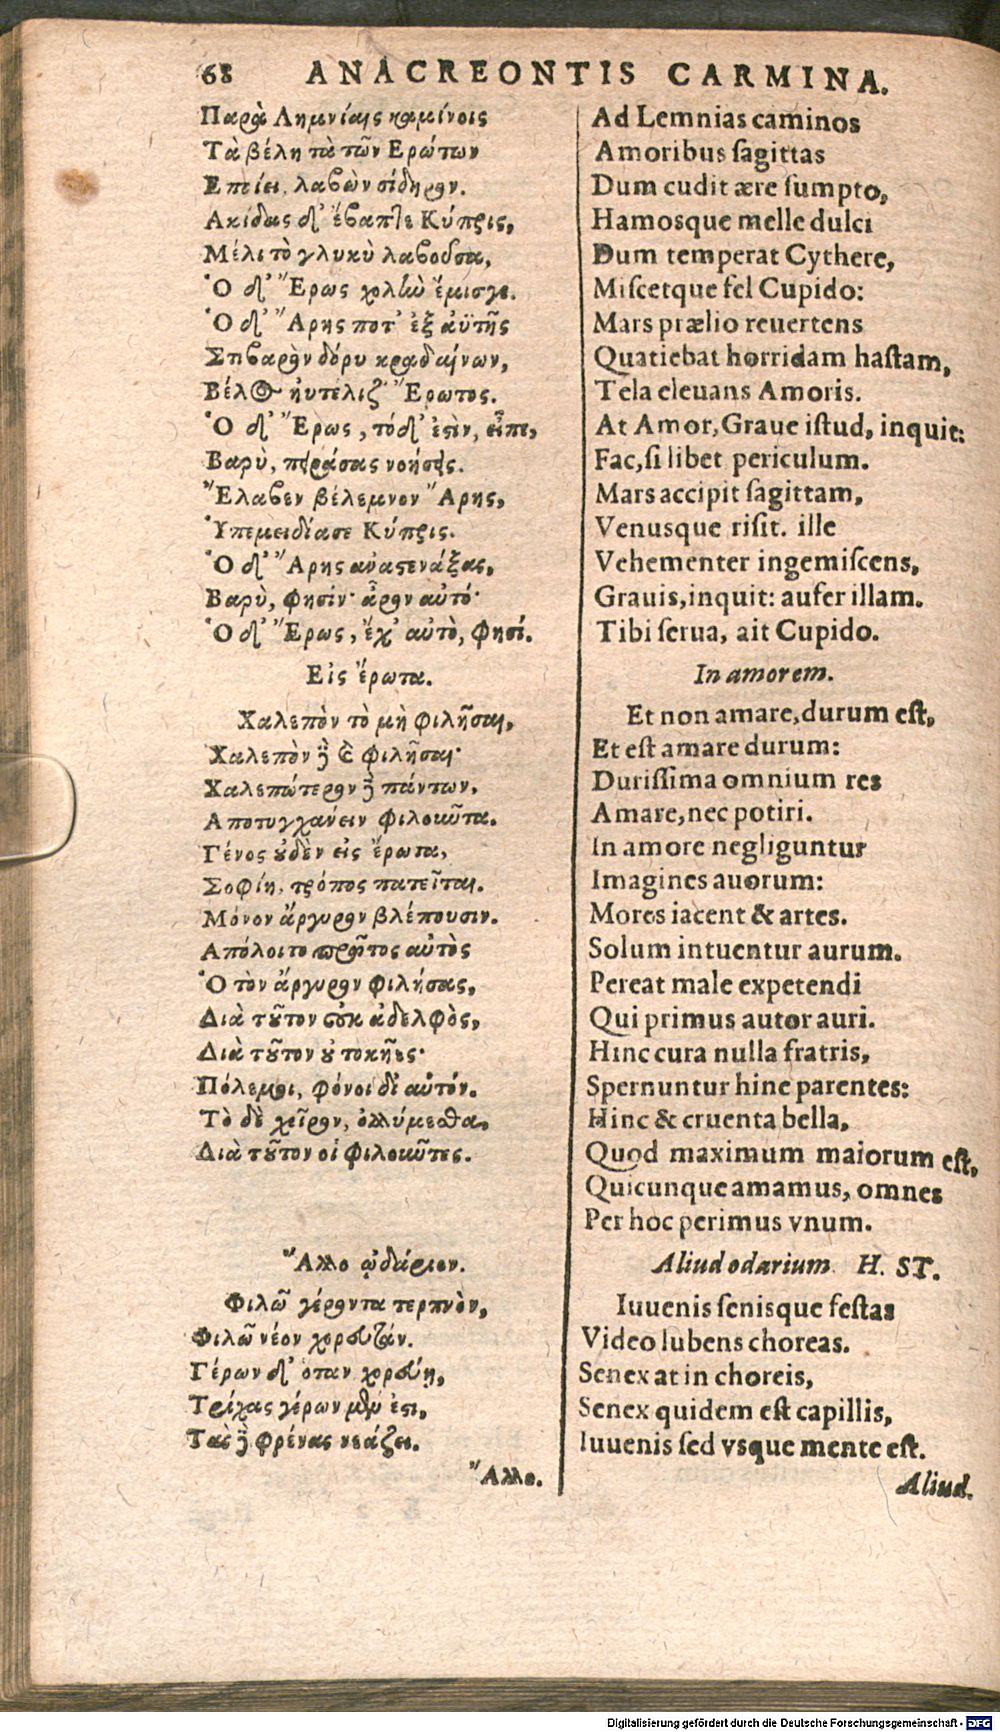 68 ANACREONTIS CARMINA.
Παρὰ Λημνίαις καμίνοις
Τὰ βέλη τὰ τῶν Ερώτων
Εποίει, λαβὼν σίδηρον.
Ακίδας δ᾽ ἔβαπτε Κύπρις,
Μέλι τὸ γλυκὺ λαβοῦσα,
Ὁ δ᾽ Ἔρως χολὴν ἔμισγε.
Ὁ δ᾽ Ἄρης ποτ᾽ ἐξ ἀϋτῆς
Στιβαρὸν δόρυ κραδαίνων,
Βέλος ηὐτέλιζ᾽ Ἔρωτος.
Ὁ δ᾽ Ἔρως, τόδ᾽ ἐστὶν, εἶπε,
Βαρὺ, πειράσας νοήσεις.
Ἔλαβεν βέλεμνον Ἄρης,
Ὑπεμειδίασε Κύπρις.
Ὁ δ᾽ Ἄρης ἀναστενάξας,
Βαρὺ, φησίν· ἆρον αὐτό·
Ὁ δ᾽ Ἔρως, ἔχ᾽ αὐτὸ, φησί.
Εἰς ἔρωτα.
Χαλεπὸν τὸ μὴ φιλῆσαι,
Χαλεπὸν δὲ καὶ φιλῆσαι·
Χαλεπώτερον δὲ πάντων,
Αποτυγχάνειν φιλοῦντα.
Γένος οὐδὲν εἰς ἔρωτα,
Σοφίη, τρόπος πατεῖται.
Μόνον ἄργυρον βλέπουσιν.
Απόλοιτο πρῶτος αὐτὸς
Ὁ τὸν ἄργυρον φιλήσας,
Διὰ τοῦτον οὐκ ἀδελφὸς,
Διὰ τοῦτον οὐ τοκῆες·
Πόλεμοι, φόνοι δι᾽ αὐτόν.
Τὸ δὲ χεῖρον, ὀλλύμεσθα,
Διὰ τοῦτον οἱ φιλοῦντες.
Ἄλλο ᾠδάριον.
Φιλῶ γέροντα τερπνὸν,
Φιλῶ νέον χορευτάν.
Γέρων δ᾽ ὅταν χορεύῃ,
Τρίχας γέρων μέν ἐστι,
Τὰς δὲ φρένας νεάζει.
Ἄλλο.
Ad Lemnias caminos
Amoribus sagittas
Dum cudit ære sumpto,
Hamosque melle dulci
Dum temperat Cythere,
Miscetque fel Cupido:
Mars prælio reuertens
Quatiebat horridam hastam,
Tela eleuans Amoris.
At Amor, Graue istud, inquit:
Fac, si libet periculum.
Mars accipit sagittam,
Venusque risit. ille
Vehementer ingemiscens,
Grauis, inquit: aufer illam.
Tibi serua, ait Cupido.
In amorem.
Et non amare, durum est,
Et est amare durum:
Durissima omnium res
Amare, nec potiri.
In amore negliguntur
Imagines auorum:
Mores iacent & artes.
Solum intuentur aurum.
Pereat male expetendi
Qui primus autor auri.
Hinc cura nulla fratris,
Spernuntur hinc parentes:
Hinc & cruenta bella,
Quod maximum maiorum est,
Quicunque amamus, omnes
Per hoc perimus vnum.
Aliud odarium. H. ST.
Iuuenis senisque festas
Video lubens choreas.
Senex at in choreis,
Senex quidem est capillis,
Iuuenis sed vsque mente est.
Aliud.
Digitalisierung gefördert durch die Deutsche Forschungsgemeinschaft - DFG